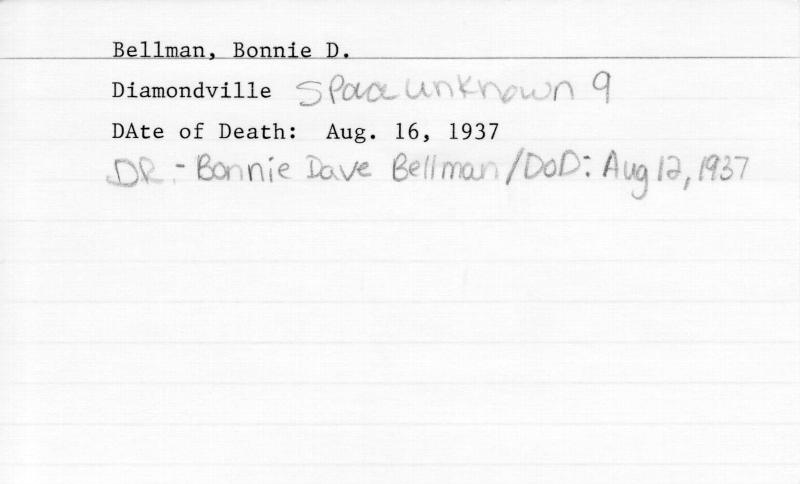 Bellman, Bonnie D.
Diamondville Space unknown 9
DAte of Death: Aug. 16, 1937
DR.- Bonnie Dave Bellman/DoD: Aug 12, 1937